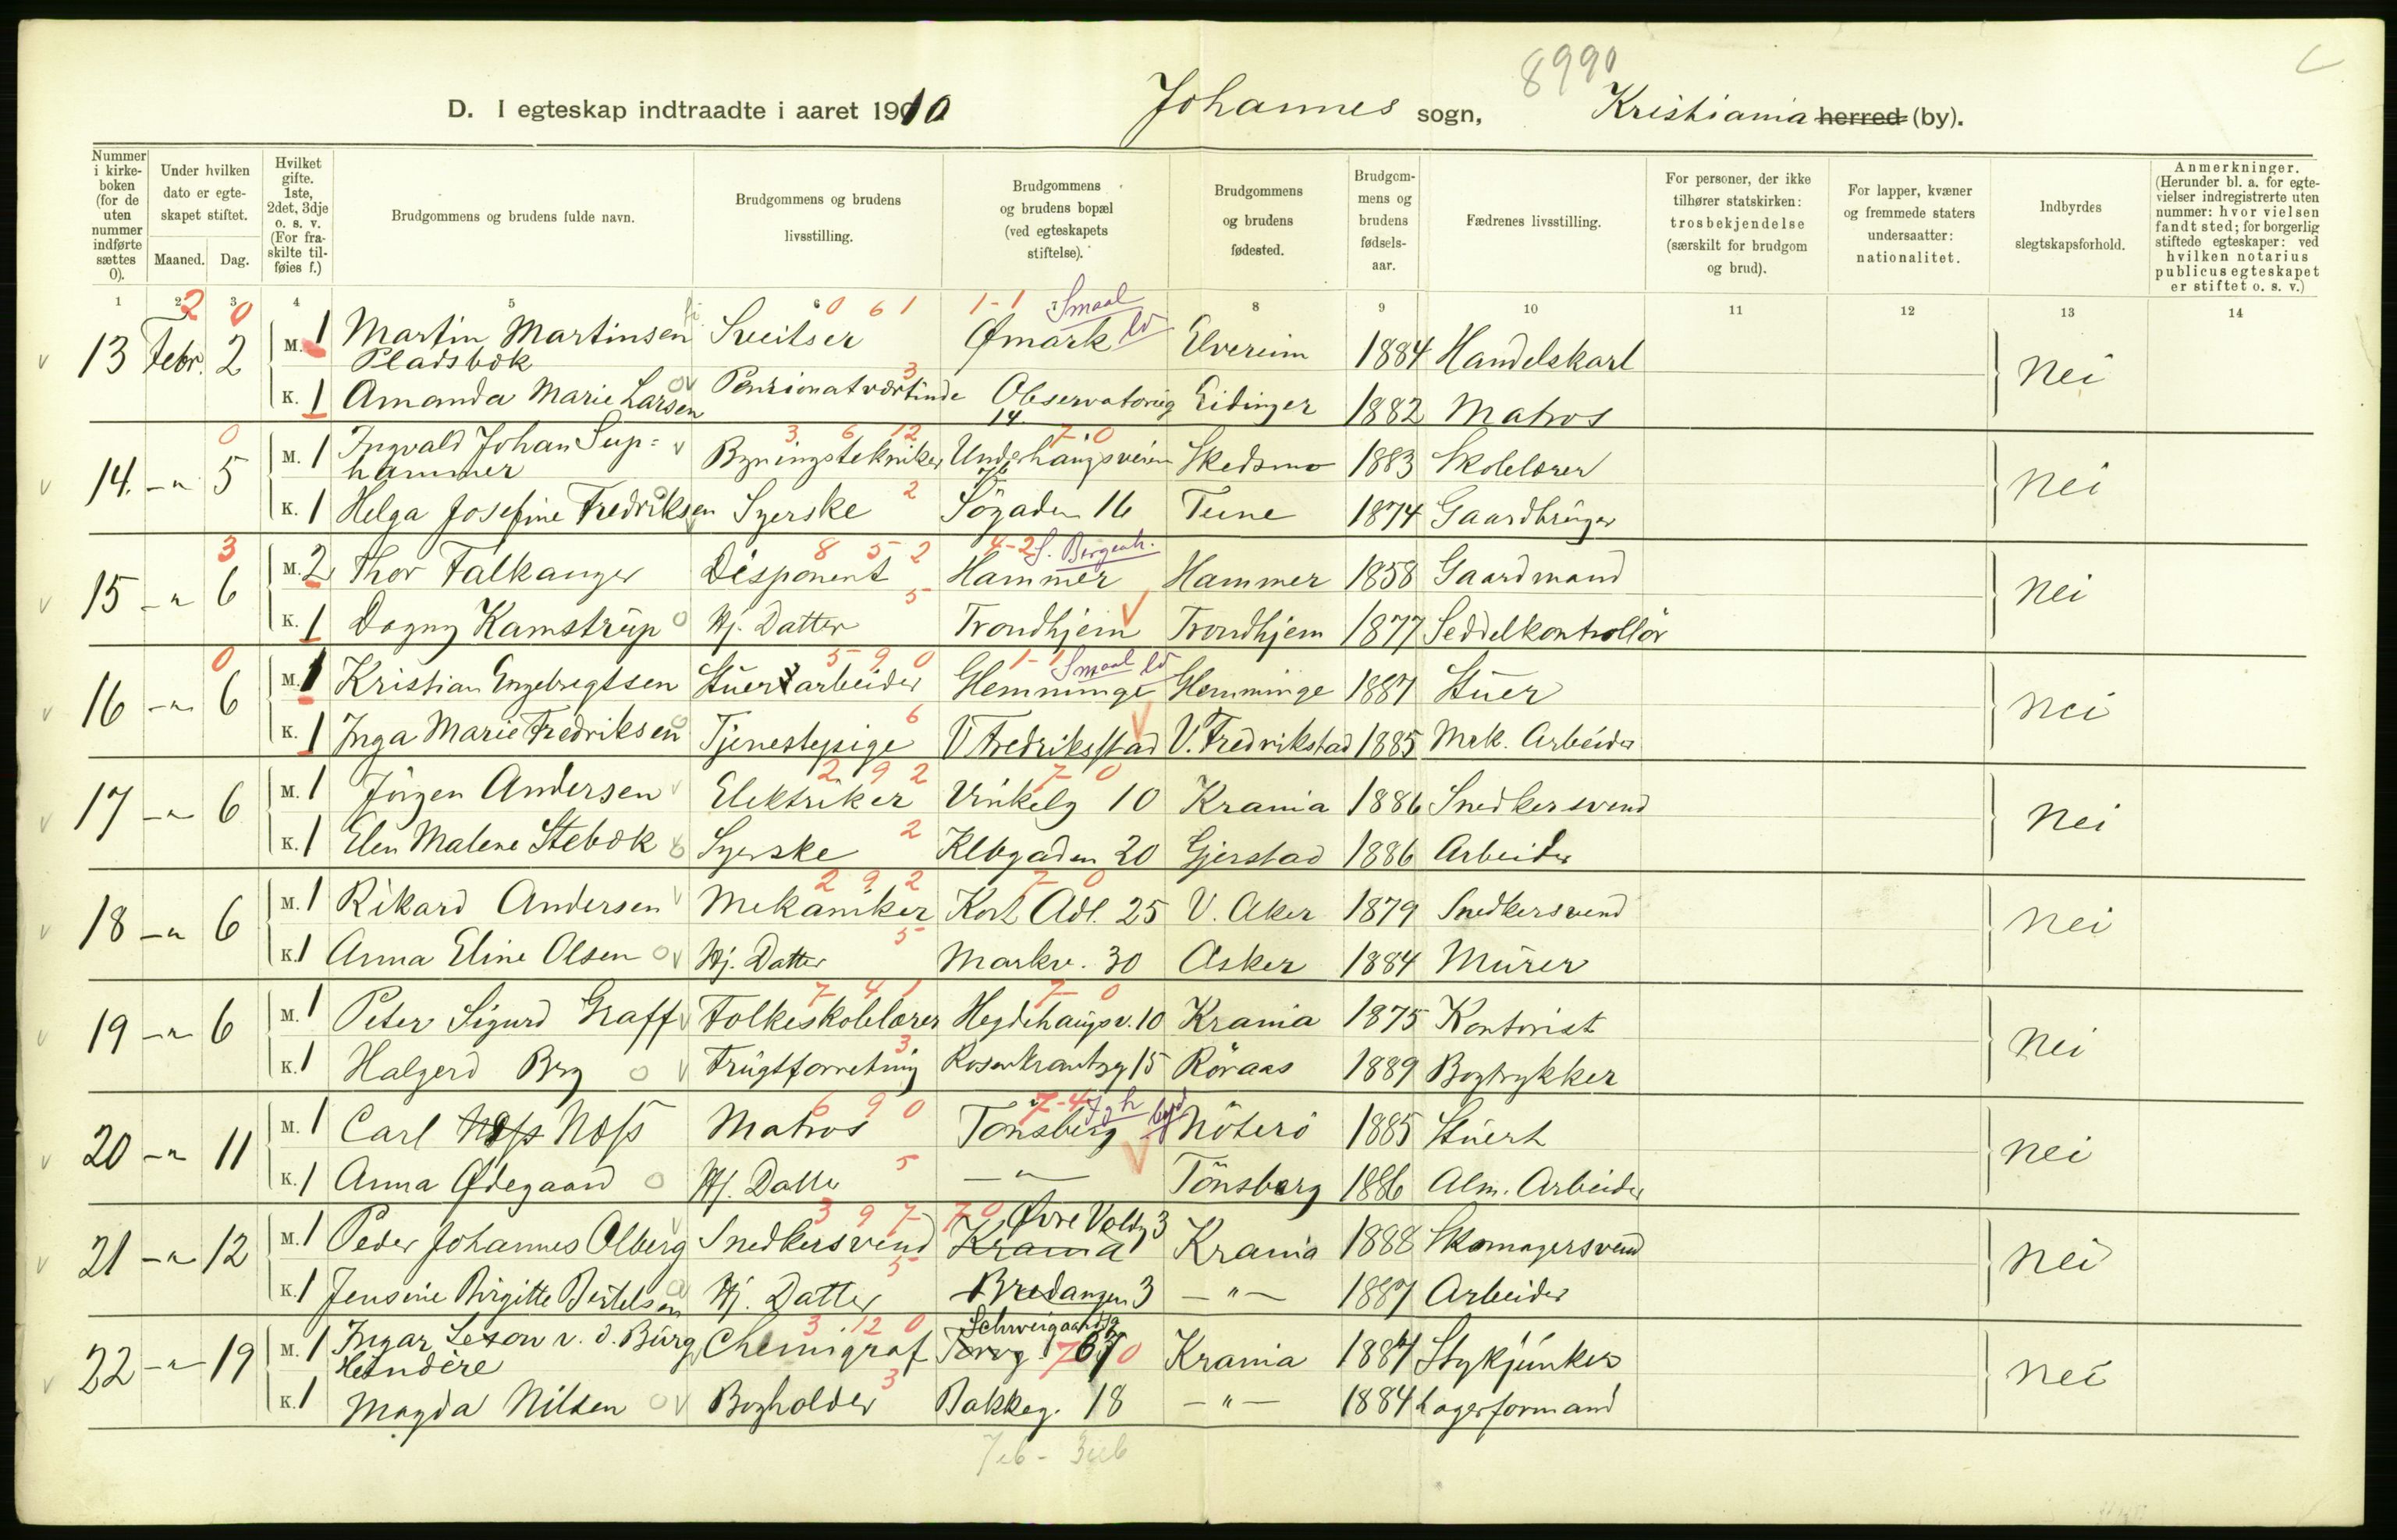 8990
D. I egteskap indtraadte i aaret 1910 Johannes sogn, Kristiania herred (by).
Nummer i kirkeboken (for de uten nummer indførte sættes 0). Under hvilken dato er egteskapet stiftet. Maaned. Dag. Hvilket gifte. 1ste, 2det, 3dje o. s. v. (For fraskilte tilføies f.) Brudgommens og brudens fulde navn. Brudgommens og brudens livsstilling. Brudgommens og brudens bopæl (ved egteskapets stiftelse). Brudgommens og brudens fødested. Brudgommens og brudens fødselsaar. Fædrenes livsstilling. For personer, der ikke tilhører statskirken: trosbekjendelse (særskilt for brudgom og brud). For lapper, kvæner og fremmede staters undersaatter: nationalitet. Indbyrdes slegtskapsforhold. Anmerkninger. (Herunder bl. a. for egtevielser indregistrerte uten nummer: hvor vielsen fandt sted; for borgerlig stiftede egteskaper: ved hvilken notarius publicus egteskapet er stiftet o. s. v.)
1 2 3 4 5 6 7 8 9 10 11 12 13 14
2 0 0 6 1 1-1 Smaal
13 Febr. 2 M. 1 Martin Martinsen Pladsbæk Sveitser Ømark Elvereim 1884 Handelskarl Nei
K. 1 Amanda Marie Larsen Pensionatværtinde 3 Observatorieg 14 Eidinger 1882 Matros
0 3 6 12 7 0
14. -"- 5 M. 1 Ingvald Johan Suphammer Bygningstekniker Underhaugsveien Skedsmo 1883 Skolelærer Nei
K. 1 Helga Josefine Fredriksen Syerske 2 Søgaden 16 Tune 1874 Gaardbruger
3 8 5 2 4-2 S. Bergenh.
15 -"- 6 M. 2 Thor Falkanger Disponent Hammer Hammer 1858 Gaardmand Nei
K. 1 Dagny Kamstrup Hj. Datter 5 Trondhjem Trondhjem 1877 Seddelkontrollör
0 5 9 0 1-1 Smaal
16 -"- 6 M. 1 Kristian Engebregtsen Stuerarbeider Glemminge Glemminge 1887 Stuer Nei
K. 1 Inga Marie Fredriksen Tjenestepige 6 V Fredriksstad V. Fredrikstad 1885 Mek. Arbeider
2 9 2 7 0
17 -"- 6 M. 1 Jörgen Andersen Elektriker Vinkelg 10 Krania 1886 Snedkersvend Nei
K. 1 Elen Malene Stebæk Syerske 2 Kl­bgaden 20 Gjerstad 1886 Arbeider
2 9 2 7 0
18 -"- 6 M. 1 Rikard Andersen Mekaniker Kort Adl. 25 V. Aker 1879 Snedkersvend Nei
K. 1 Anna Eline Olsen Hj. Datter 5 Markv. 30 Asker 1884 Murer
7 4 1 7 0
19 -"- 6 M. 1 Peter Sigurd Graff Folkeskolelærer Hegdehaugsv. 10 Krania 1875 Kontorist Nei
K. 1 Halgerd Berg Frugtforretning 3 Rosenkrantzg 15 Röraas 1889 Bogtrykker
6 9 0 7-4
20 -"- 11 M. 1 Carl Næss Matros Tönsberg Nöterö 1885 Stuert Nei
K. 1 Anna Ødegaard Hj. Datter 5 -"- Tönsberg 1886 Alm. Arbeider
3 9 7 7 0 Øvre Voldg 3
21 -"- 12 M. 1 Peder Johannes Olberg Snedkersvend Krania Krania 1888 Skomagersvend Nei
K. 1 Jensine Birgitte Bertelsen Hj. Datter 5 Bredangen 3 -"- 1887 Arbeider
3 12 0 Schweigaardsg
22 -"- 19 M. 1 Ingar Lexon v. d. Burg Hendere Chemigraf Torvg. 67 7 0 Krania 1887 Stykjunker Nei
K. 1 Magda Nilsen Bogholder 3 Bakkeg. 18 -"- 1884 Lagerformand